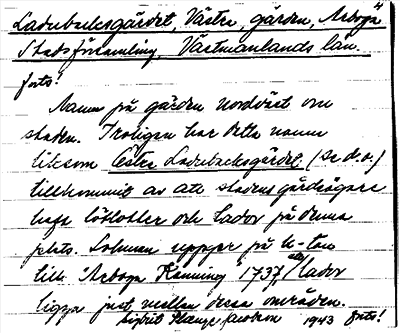 Ladubacksgärdet, Västra, gården, Arboga
Stadsförsamling, Västmanlands län.
forts!
Namn på gården nordväst om
staden. Troligen har detta namn
liksom Östra Ladubacksgärdet (se d.o.)
tillkommit av att stadens gårdsägare
haft lökholar och lador på denna
plats. Lohman uppger på k-tan
till "Arboga Känning 1737, att lador
ligga just mellan dessa områden.
Sigbrit Plænge Jacobson 1943 forts!